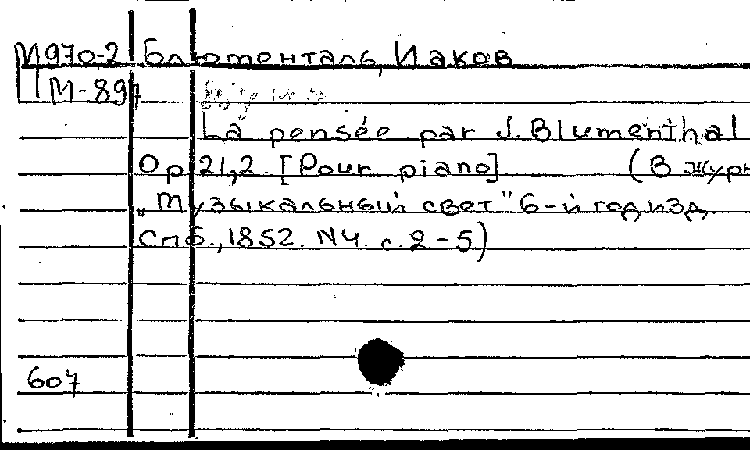 М970-2 Блюменталь, Иаков
М-897
La pensée par J. Blumenthal
Op 21,2 [Pour piano] (В журн
„Музыкальный свет" 6-й год изд.
Спб., 1852. N4. с. 2-5)
607